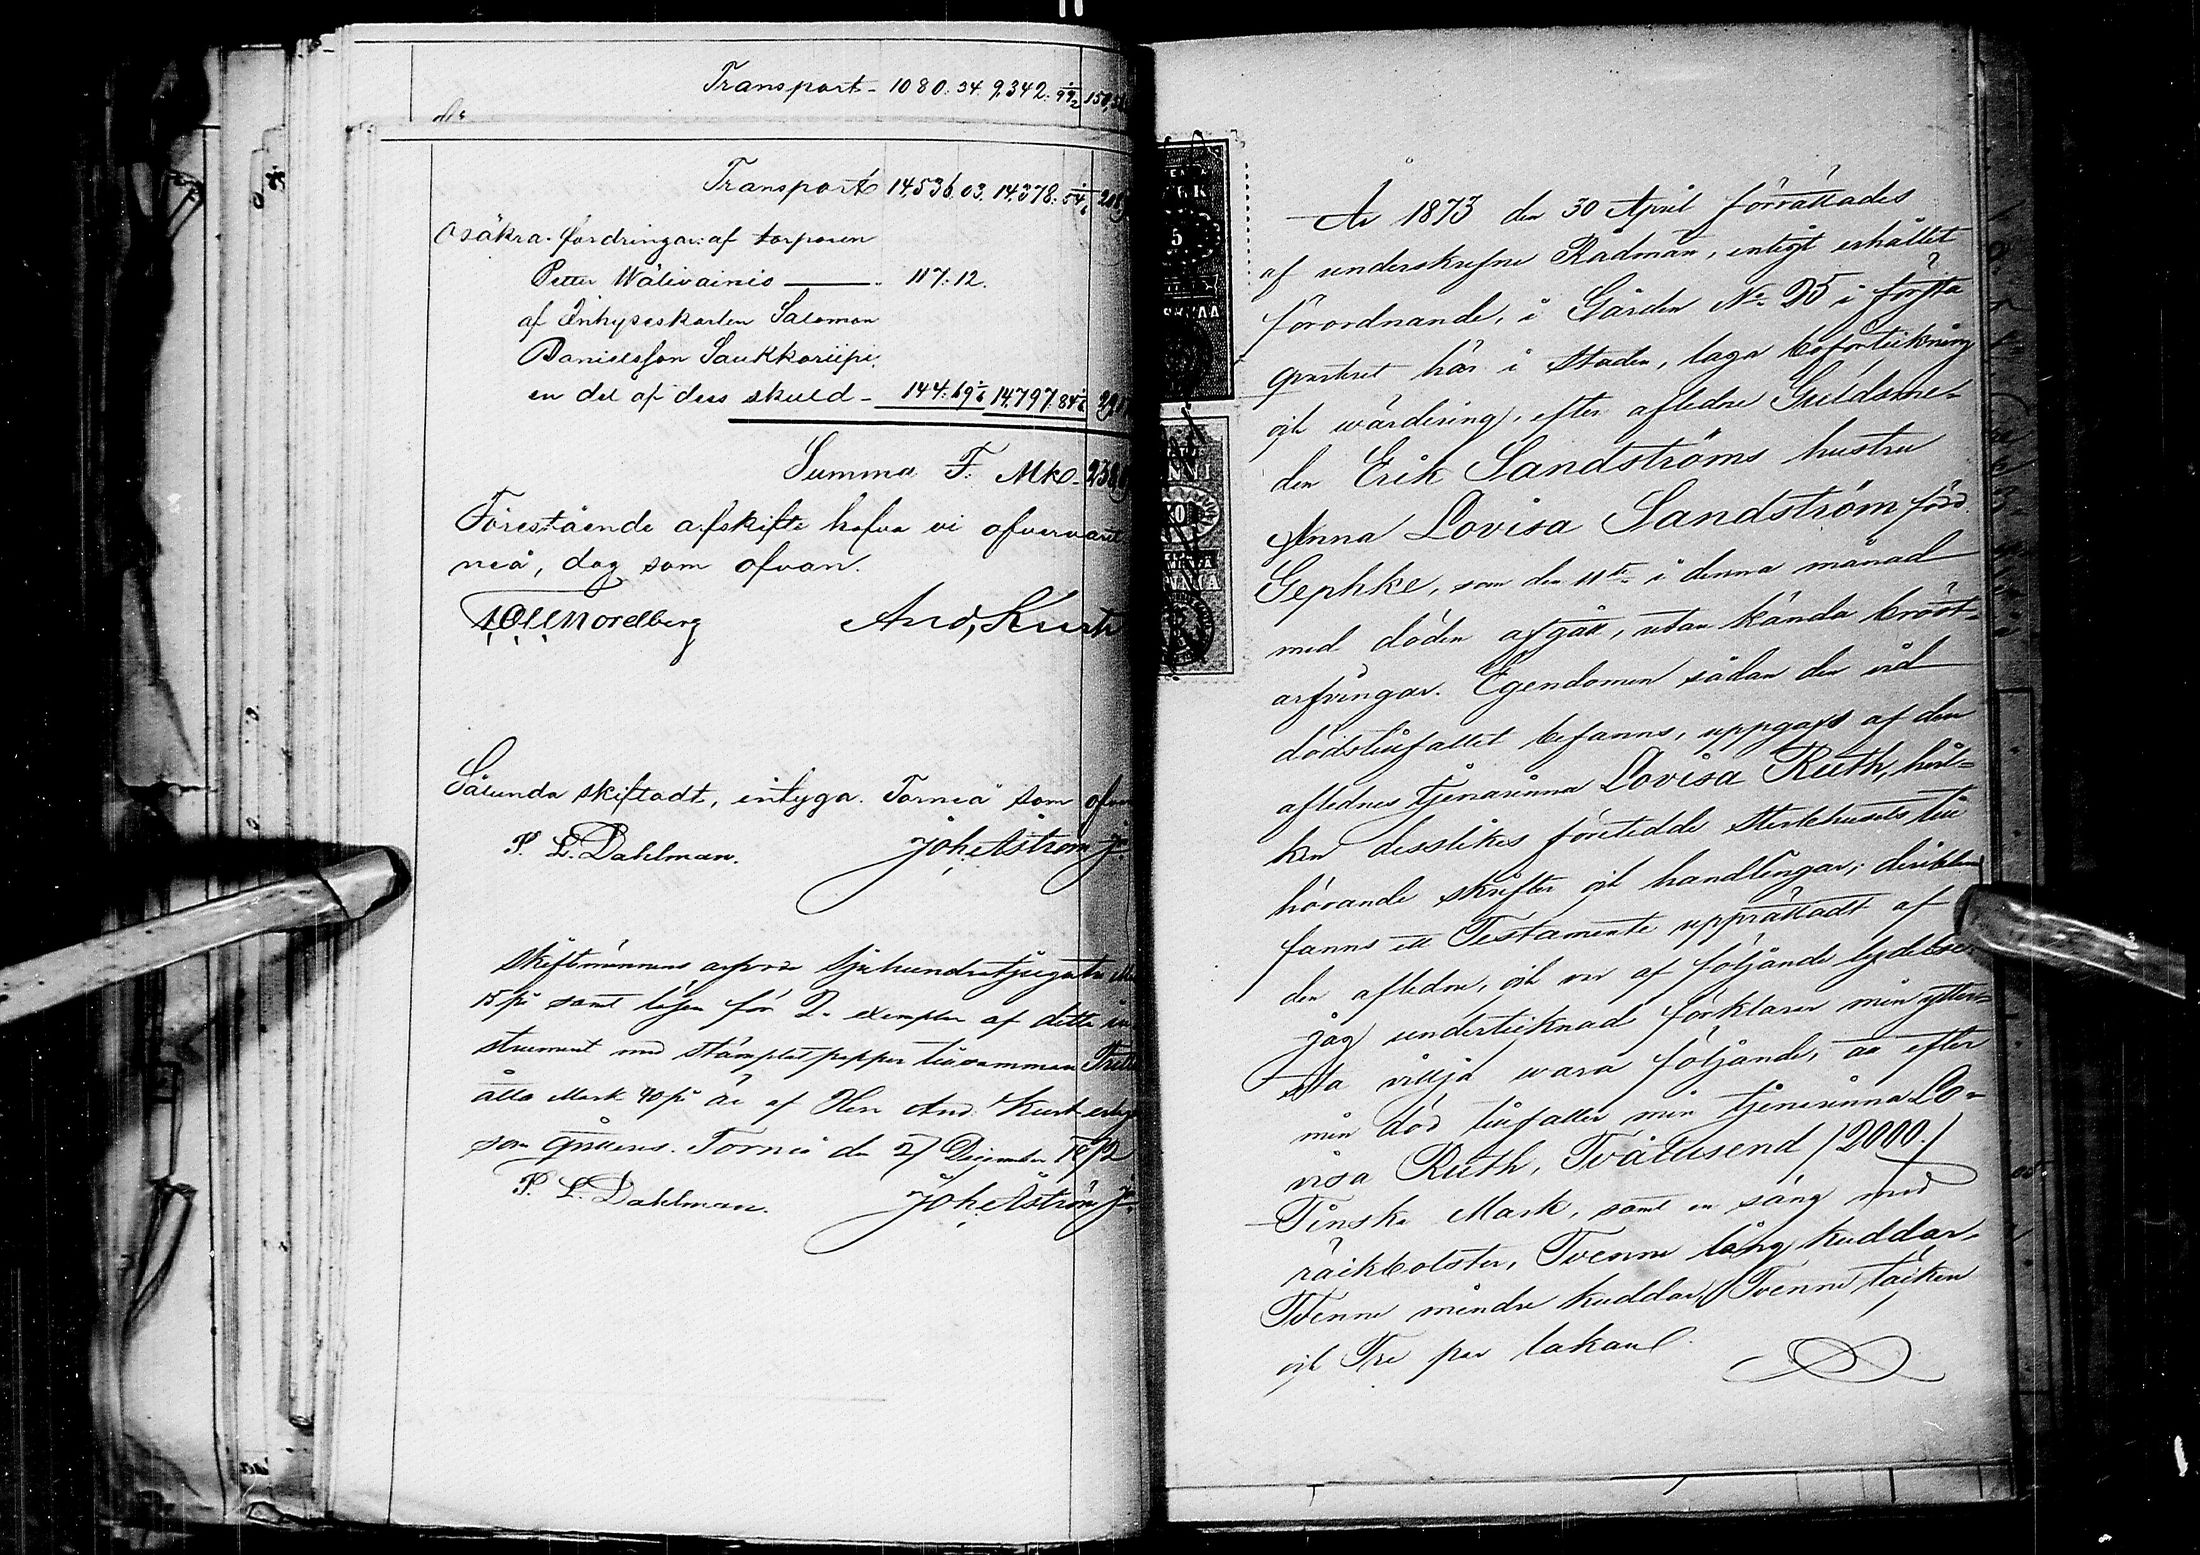 Transport - 1080. 54. 9,342.
Transport 14,536. 03. 14,378.
Osäkra fordringar: af torparen
Petter Wälivainio 117. 12.
af Inhyseskarlen Salomon
Danielsson Saukkoriipi
en del af dess skuld - 144. 69 14,797. 84
Summa F. Mk
Förestående afskifte hafva vi öfvervarit
neå, dag som ofvan.
Nordberg And, Kurth
Sålunda skiftadt, intyga. Torneå som ofvan
P. L. Dahlman. Joh. Åström Jr.
Skiftmännens arfvode Sjuhundratjugutre
15 pi samt lösen för 2. exemplar af detta in
strument med stämplat papper tillsamman
åtta Mark 40 pi är af Herr And. Kurth
som qvitteras. Torneå den 27 December 1872
P. L. Dahlman. Joh. Åström Jr.
År 1873 den 30 April förrättades
af underskrefne Rådman, enligt erhållet
förordnande, i Gården No 25 i första
qvarteret här i Staden, laga boförteckning
och wärdering, efter aflidne Guldsme-
den Erik Sandströms hustru
Anna Lovisa Sandström född
Gephke, som den 11te i denna månad
med döden afgått, utan kända bröst-
arfvingar. Egendomen sådan den vid
dödstillfället befanns, uppgafs af den
aflidnes tjenarinna Lovisa Ruth, hvil-
ken desslikes företedde Sterbhusets till
hörande skrifter och handlingar; deribland
fanns ett Testamente upprättadt af
den aflidne, och var af följande lydelse:
Jag undertecknad förklarar min ytter-
sta vilja wara följande, att efter
min död tillfaller min tjenarinna Lo-
visa Ruth, Tvåtusend /2000./
Finska Mark, samt en säng med
råckbolster, Tvenne lång kuddar,
Tvenne mindre kuddar, Tvenne täcken
och Tre par lakan.